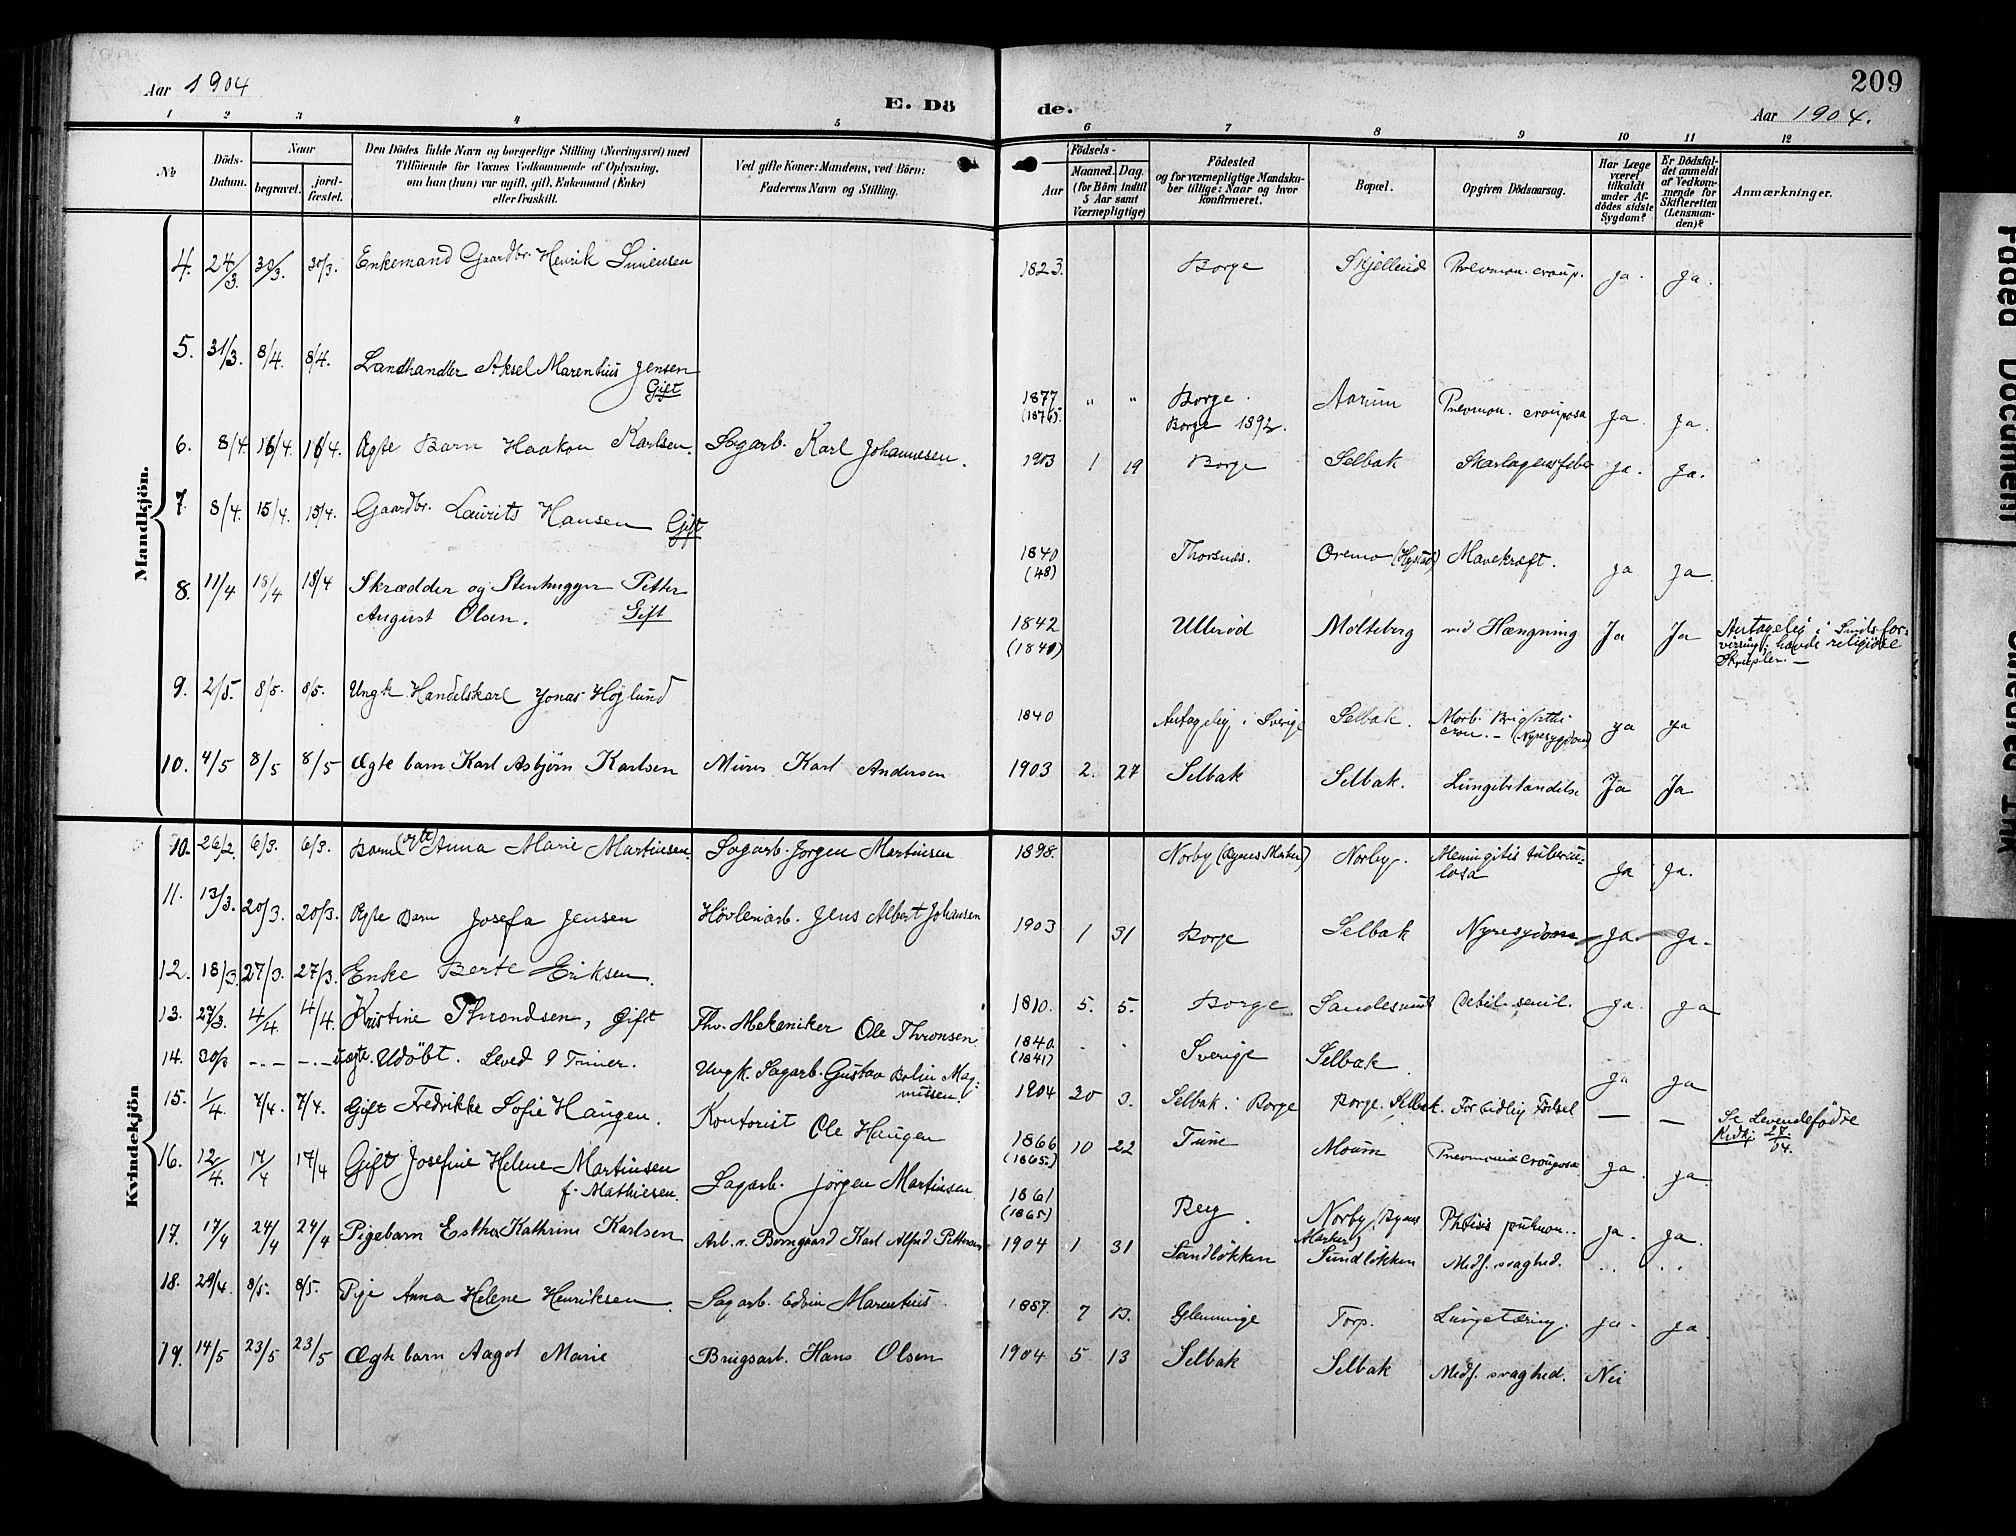 Aar 1904
E. Dö
de.
Aar 1904.
209
1 2 3 4 5 6 7 8 9 10 11 12
No
Döds-Datum.
Naar
begravet.
jord-fæstet.
Den Dödes fulde Navn og borgerlige Stilling (Næringsvei) med
Tilföiende for Voxnes Vedkommende af Oplysning,
om han (hun) var ugift, gift, Enkemand (Enke)
eller fraskilt.
Ved gifte Koner: Mandens, ved Börn:
Faderens Navn og Stilling.
Födsels-
Aar
Maaned. Dag.
(for Börn indtil
5 Aar samt
Værnepligtige)
Födested
og for værnepligtige Mandsku-
ber tillige: Naar og hvor
konfirmeret.
Bopæl.
Opgiven Dödsaarsag.
Har Læge
været
tilkaldt
under Af-
dödes sidste
Sygdom?
Er Dödsfal-
det anmeldt
af Vedkom-
mende for
Skifteretten
(Lensman-
den)?
Anmærkninger.
Mandkjön.
4. 24/3 30/3 30/3. Enkemand Gaardbr. Henrik 1823. Borge Pnevmon. croup. Ja. Ja.
5. 31/3. 8/4. 8/4. Landhandler Aksel Marentius Jensen
Gift
1877 (1876). " " Borge. Borge 1892. Aarum Pnevmon. crouposa Ja. Ja.
6. 8/4. 16/4. 16/4. Ægte Barn Haakon Karlsen. Sagarb. Karl Johannesen. 1903 1 19 Borge Selbak Skarlagensfeber Ja. Ja.
7. 8/4. 15/4. 15/4. Gaardbr. Laurits Hansen Gift
1840 (48) Thorsnes. Oremo Mavekræft. Ja Ja.
8. 11/4 18/4 18/4 Skrædder og Stenhugger Petter
August Olsen. Gift
1842 (1840) Ullerød Molteberg ved Hængning Ja Ja Antagelig i Sindsfor-
virring; havde religiöse
Skrupler.—
9. 2/5. 8/5. 8/5. Ungk Handelskarl Jonas Höglund
1840 Antagelig i Sverige Selbak. Morb. Brightii
cron.— (Nyresygdom) Ja Ja
10. 4/5 8/5 8/5 Ægte barn Karl Asbjörn Karlsen Murer Karl Andersen 1903 2. 27 Selbak Selbak. Lungebetændelse Ja Ja
Kvindekjön
10. 26/2. 6/3. 6/3. Barn (Ægte) Anna Marie Martinsen. Sagarb. Jörgen Martinsen 1898. Norby (Byens Marker) Norby. Meningitis tubercu-
losa Ja Ja.
11. 13/3. 20/3. 20/3. Ægte Barn Josefa Jensen Hövleriarb. Jens Albert Johansen 1903 1 31 Borge Selbak Nyresygdom Ja. Ja.
12. 18/3. 27/3. 27/3. Enke Berte Eriksen.
1810. 5. 5. Borge Debil. senil. Ja. Ja
13. 27/3. 4/4 4/4. Kristine Throndsen, Gift Fhv. Mekaniker Ole Thronsen. 1840. (1841) Sverige Selbak. Ja Ja
14. 30/3 - - - - uægte. Udöbt. Leved 9 Timer. Ungk. Sagarb. Gustav Bolin Mag-
nussen. 1904 30 3. Selbak i Borge Borge. Selbak. For tidlig Födsel — — Se Levendefödte
Kvdkj: 27/04.
15. 1/4 7/4. 7/4. Gift Fredrikke Sofie Haugen. Kontorist Ole Haugen 1866 (1865) 10 22 Tune Moum Pnevmonia crouposa Ja. Ja.
16. 12/4 17/4 17/4 Gift Josefine Helene Martinsen
f. Mathiesen. Sagarb. Jörgen Martinsen 1861 (1865) Berg Norby (Byens
Marker) Phtisis pulmon.. Ja. Ja.
17. 17/4 24/4 24/4 Pigebarn Esther Kathrine Karlsen Arb. v. Borregaard Karl Alfred Pettersen 1904 1 31 Sandlökken Sundlökken Medf. svaghed. .. ..
18. 29/4. 8/5. 8/5. Pige Anna Helene Henriksen. Sagarb. Edvin Marentius 1887. 7 13. Glemminge Torp. Lungetæring. Ja. Ja.
19. 14/5 23/5 23/5 Ægte barn Aagot Marie Brugsarb. Hans Olsen 1904 5 13 Selbak Selbak Medf. svaghed. Nei
Faded Document
Smeared Ink